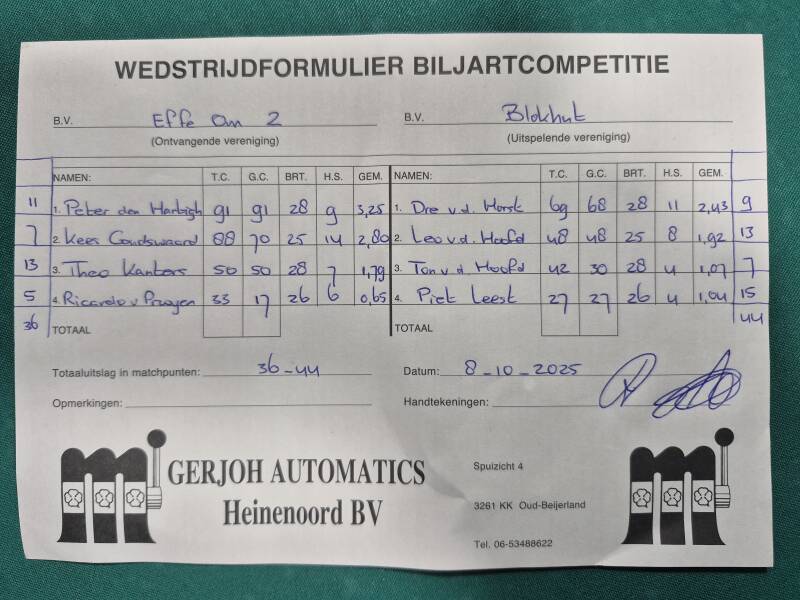 WEDSTRIJDFORMULIER BILJARTCOMPETITIE
B.V. Effe Om 2 B.V. Blokhut
(Ontvangende vereniging) (Uitspelende vereniging)
NAMEN: T.C. G.C. BRT. H.S. GEM. NAMEN: T.C. G.C. BRT. H.S. GEM.
11 1. Peter den Harbigh 91 91 28 9 3,25 1. Dre v.d. Horst 69 68 28 11 2,43 9
7 2. Kees Goudswaard 88 70 25 14 2,80 2. Leo v.d. Hoofd 48 48 25 8 1,92 13
13 3. Theo Kanters 50 50 28 7 1,79 3. Ton v.d Hoofd 42 30 28 4 1,07 7
5 4. Ricardo v 33 17 26 6 0,65 4. Piet Leest 27 27 26 4 1,04 15
36 TOTAAL TOTAAL 44
Totaaluitslag in matchpunten: 36-44 Datum: 8-10-2025
Opmerkingen: Handtekeningen:
GERJOH AUTOMATICS
Heinenoord BV
Spuizicht 4
3261 KK Oud-Beijerland
Tel. 06-53488622